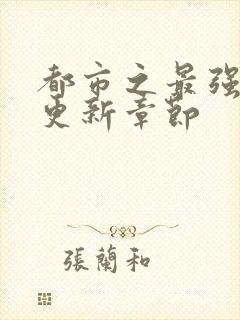 都市之最强
更新章節
張蘭和